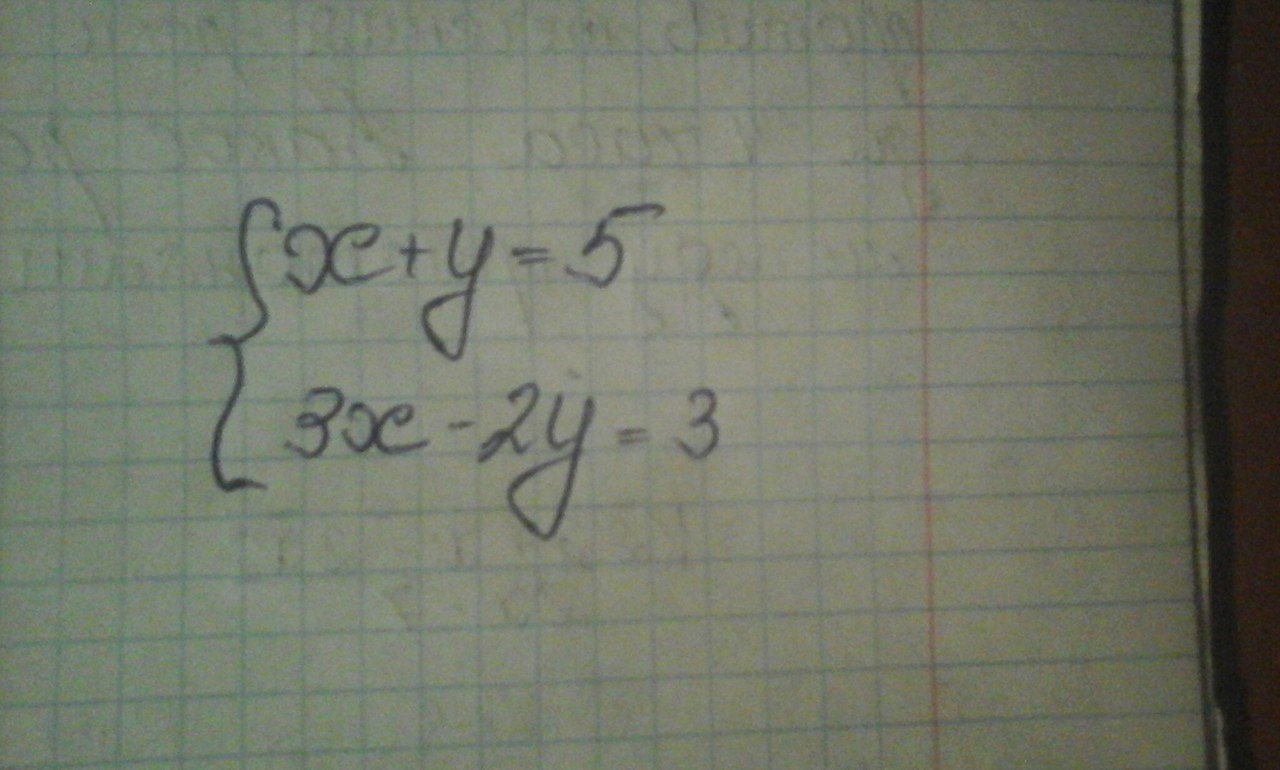 x+y=5
3x-2y=3